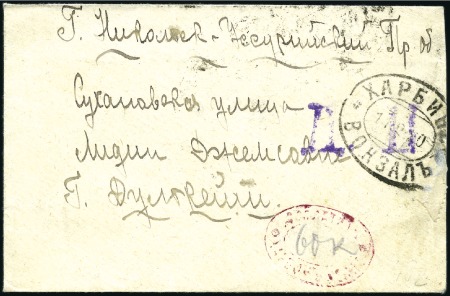 Г. Никольск-Уссурийский Пр об
Сухановская улица
Лидии Джемсовне
Г. Дулькейт
ХАРБИН
ВОКЗАЛЪ
Д. П
60 к